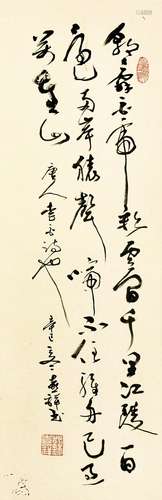 朝辭白帝彩雲間千里江陵一日
還兩岸猿聲啼不住輕舟已過
萬重山
唐人李白詩
辛巳
書